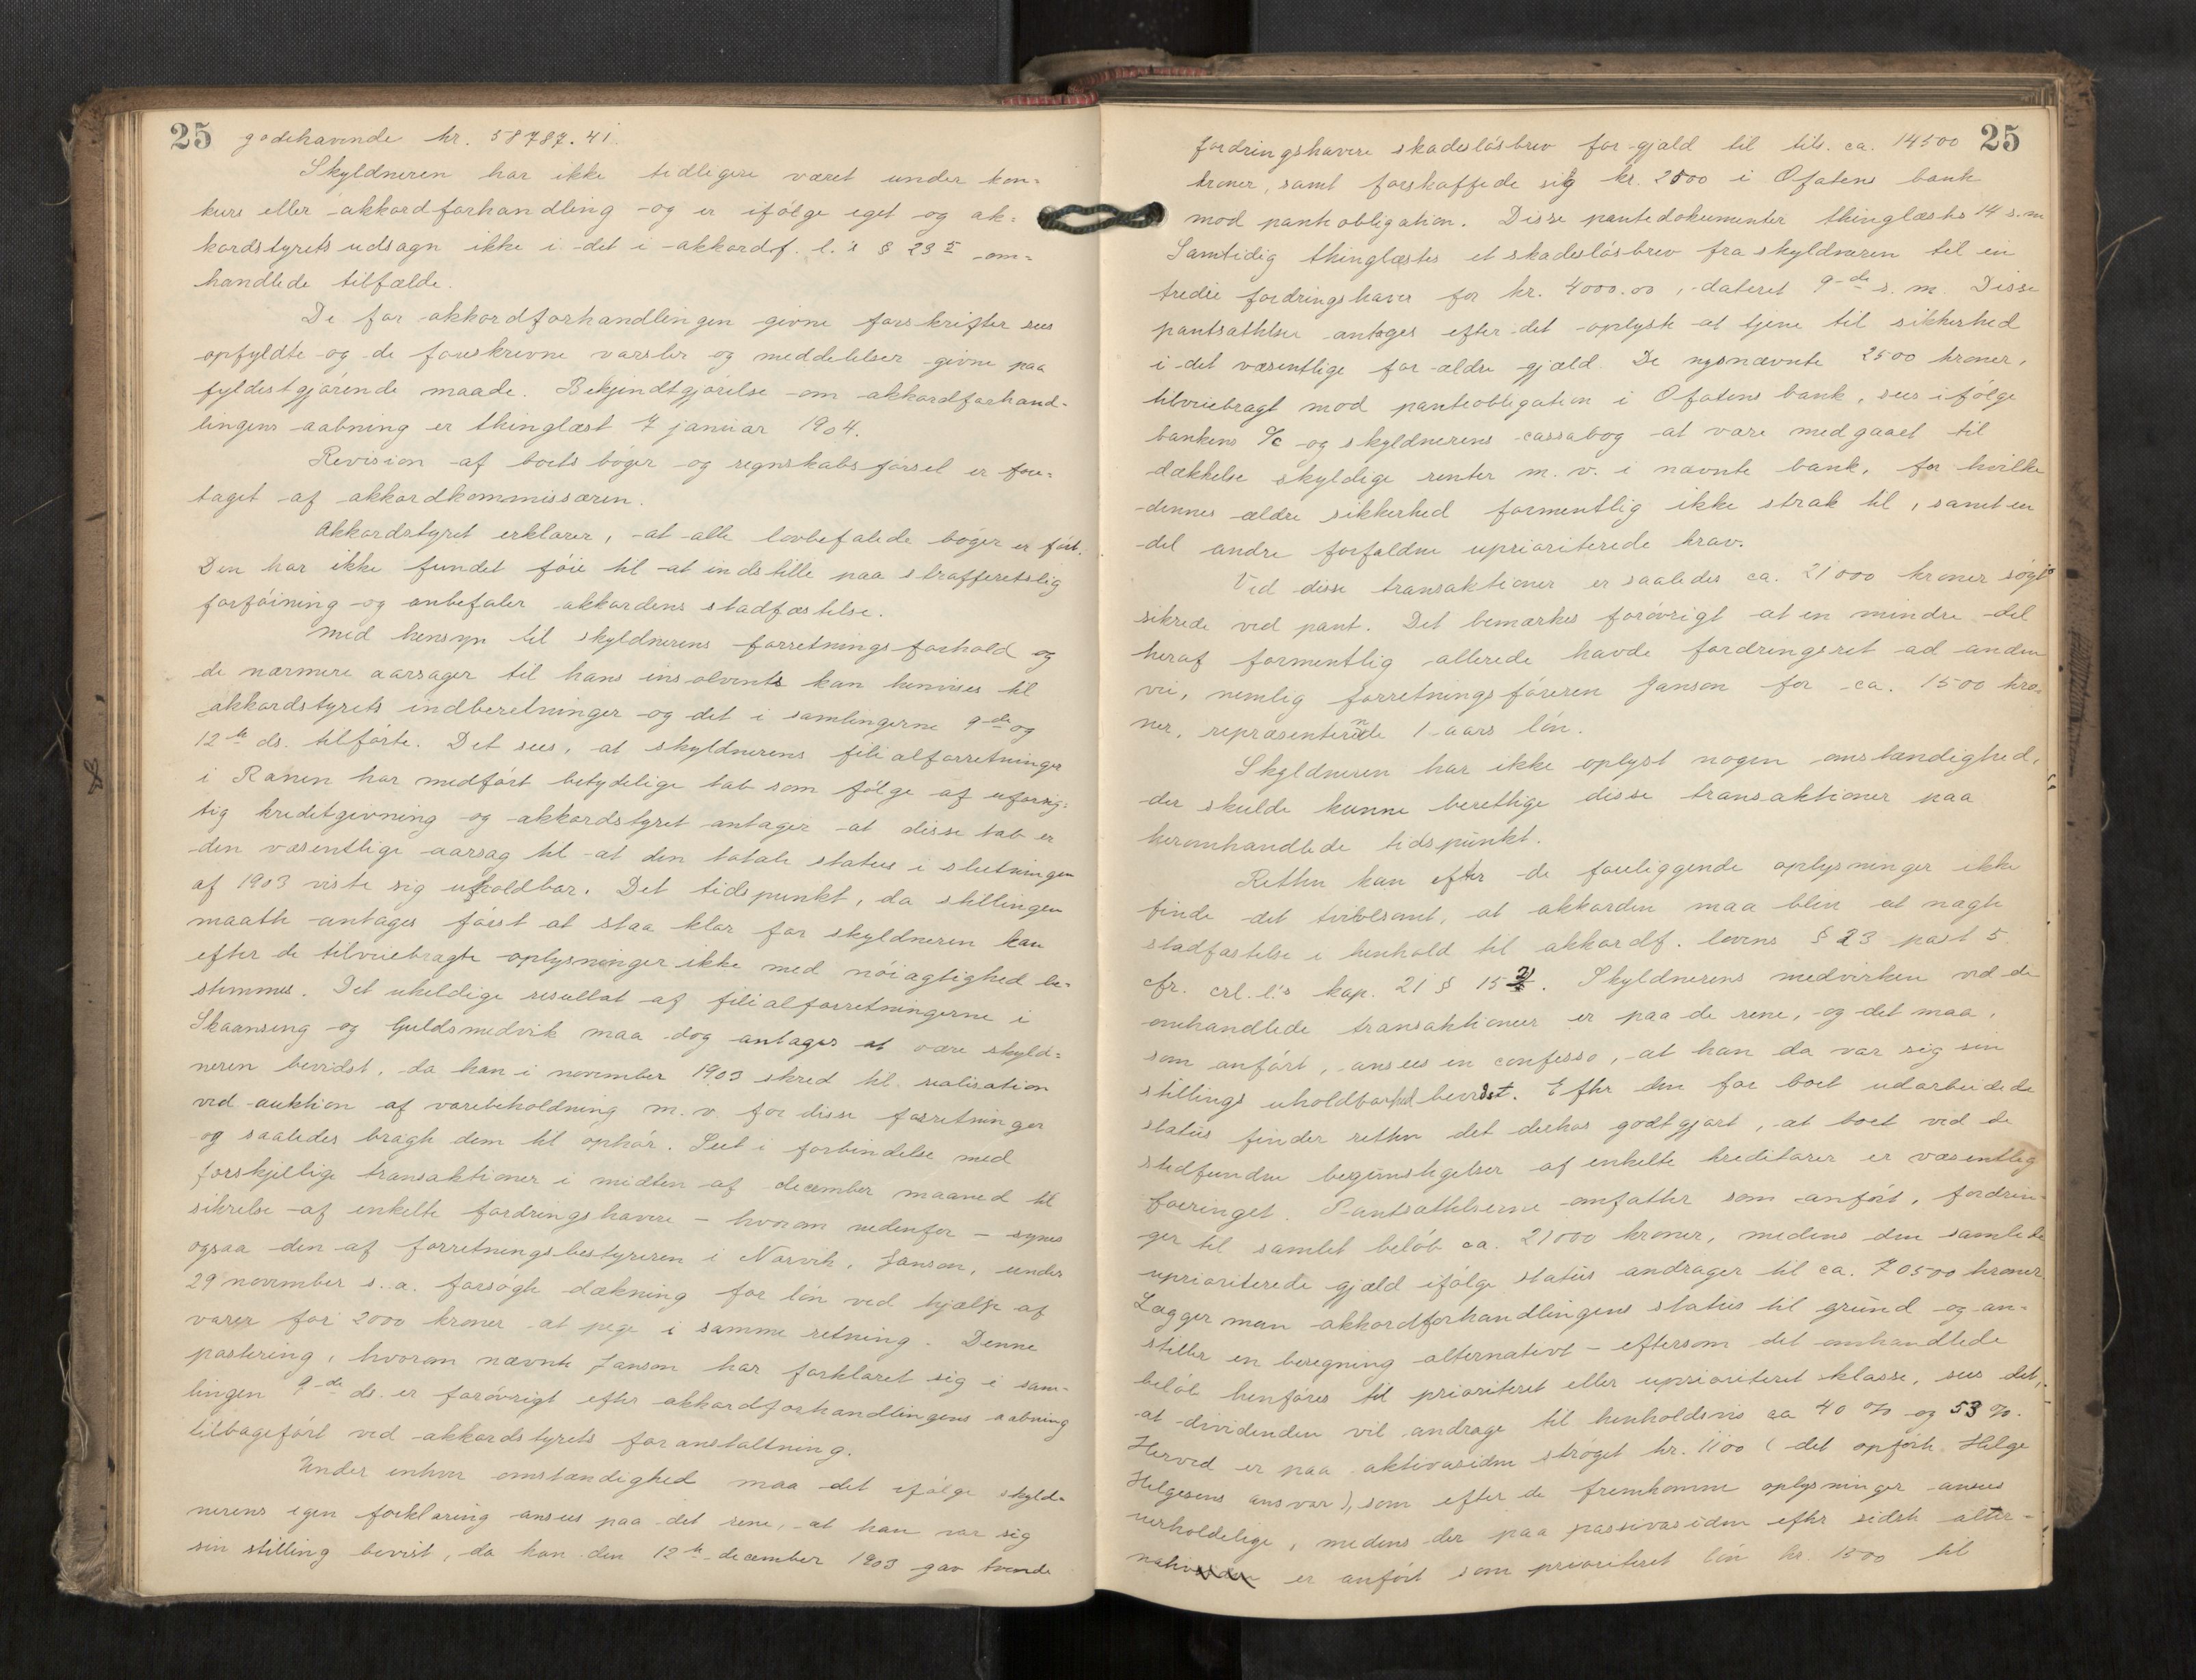 25 godehavende kr. 58787.41.
Skyldneren har ikke tidligere været under kon-
kurs eller akkordforhandling og er ifölge eget og ak-
kordstyrets udsagn ikke i det i akkordf. l.'s § 23 om-
handlede tilfælde.
De for akkordforhandlingen givne forskrifter sees
opfyldte og de foreskrevne varsler og meddelelser givne paa
fyldestgjörende maade. Bekjendtgjörelse om akkordforhand-
lingens aabning er thinglæst 7 januar 1904.
Revision af boets böger og regnskabsförsel er fore-
taget af akkordkommissæren.
Akkordstyret erklærer, at alle lovbefalede böger er fört.
Den har ikke fundet föie til at indstille paa strafferetslig
forföining og anbefaler akkordens stadfæstelse.
Med hensyn til skyldnerens forretningsforhold og
de nærmere aarsager til hans insolvents kan henvises til
akkordstyrets indberetninger og det i samlingerne 9de og
12te ds. tilförte. Det sees, at skyldnerens filialforretninger
i Ranen har medfört betydelige tab som fölge af uforsig-
tig kreditgivning og akkordstyret antager at disse tab er
den væsentlige aarsag til at den totale status i slutningen
af 1903 viste sig uholdbar. Det tidspunkt, da stillingen
maatte antages först at staa klar for skyldneren kan
efter de tilveiebragte oplysninger ikke med nöiagtighed be-
stemmes. Det uheldige resultat af filialforretningerne i
Skaanseng og Guldsmedvik maa dog antages at være skyld-
neren bevidst, da han i november 1903 skred til realisation
ved auktion af varebeholdning m.v. for disse forretninger
og saaledes bragte dem til ophör. Seet i forbindelse med
forskjellige transaktioner i midten af december maaned til
sikrelse af enkelte fordringshavere – hvorom nedenfor – synes
ogsaa den af forretningsbestyreren i Narvik, Janson, under
29 november s.a. forsögte dækning for lön ved hjælp af
varer for 2000 kroner at pege i samme retning. Denne
postering, hvorom nævnte Janson har forklaret sig i sam-
lingen 9de ds. er forövrigt efter akkordforhandlingens aabning
tilbagefört ved akkordstyrets foranstaltning.
Under enhver omstændighed maa det ifölge skyld-
nerens egen forklaring ansees paa det rene, at han var sig
sin stilling bevist, da han den 12te december 1903 gav tvende
25
fordringshavere skadeslösbrev for gjæld til tils. ca. 14500
kroner, samt forskaffede sig kr. 2500 i Ofotens bank
mod pantobligation. Disse pantedokumenter thinglæstes 14 s.m
Samtidig thinglæstes et skadeslösbrev fra skyldneren til en
tredie fordringshaver for kr. 4000.00, dateret 9de s.m. Disse
pantsættelser antages efter det oplyste at tjene til sikkerhed
i det væsentlige for ældre gjæld. De nysnævnte 2500 kroner,
tilveiebragt mod panteobligation i Ofotens bank, sees ifölge
bankens c/c og skyldnerens cassabog at være medgaaet til
dækkelse skyldige renter m.v. i nævnte bank, for hvilke
dennes ældre sikkerhed formentlig ikke strak til, samt en
del andre forfaldne uprioriterede krav.
Ved disse transaktioner er saaledes ca. 21000 kroner sögt
sikrede ved pant. Det bemærkes forövrigt at en mindre del
heraf formentlig allerede havde fordringsret ad anden
vei, nemlig forretningsföreren Janson for ca. 1500 kro-
ner, repræsenterende 1 aars lön.
Skyldneren har ikke oplyst nogen omstændighed,
der skulde kunne berettige disse transaktioner paa
heromhandlede tidspunkt.
Retten kan efter de foreliggende oplysninger ikke
finde det tvivlsomt, at akkorden maa bliv at nægte
stadfæstelse i henhold til akkordf. lovens § 23 post 5
cfr. crl. l.'s kap. 21 § 15. Skyldnerens medvirken ved de
omhandlede transaktioner er paa de rene, og det maa,
som anfört, ansees en confesso, at han da var sig sin
stillings uholdbarhed bevidst. Efter den for boet udarbeidede
status finder retten det derhos godtgjort, at boet ved de
stedfundne begunstigelser af enkelte kreditorer er væsentlig
foringet. Pantsættelserne omfatter som anfört, fordrin-
ger til samlet belöb ca. 21000 kroner, medens den samlede
uprioriterede gjæld ifölge status andrager til ca. 70500 kroner
Lægger man akkordforhandlingens status til grund og an-
stiller en beregning alternativt – eftersom det omhandlede
belöb henföres til prioriteret eller uprioriteret klasse, sees det,
at dividenden vil andrage til henholdsvis ca 40 % og 53 %.
Herved er paa aktivasiden ströget kr. 1100 (det opförte Helge
Helgesens ansvar), som efter de fremkomne oplysninger ansees
uerholdelige, medens der paa passivasiden efter sidste alter-
nativ er anfört som prioriteret lön kr. 1500 til